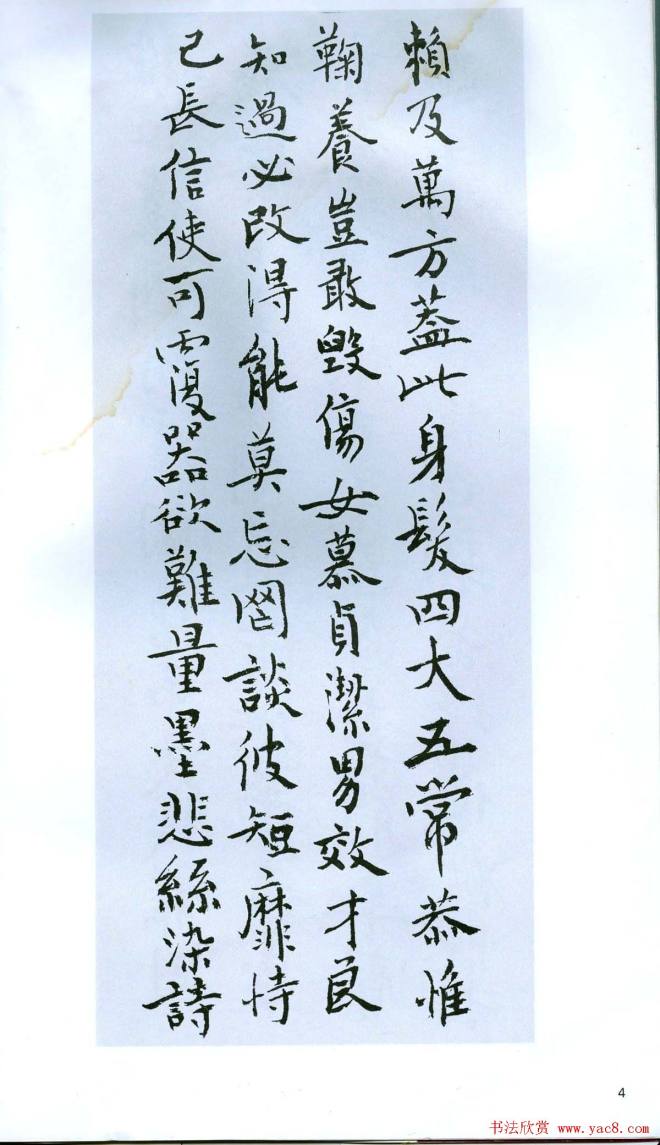 賴及萬方蓋此身髮四大五常恭惟
鞠養豈敢毀傷女慕貞潔男效才良
知過必改得能莫忘罔談彼短靡恃
己長信使可覆器欲難量墨悲絲染詩
4
书法欣赏 www.yac8.com